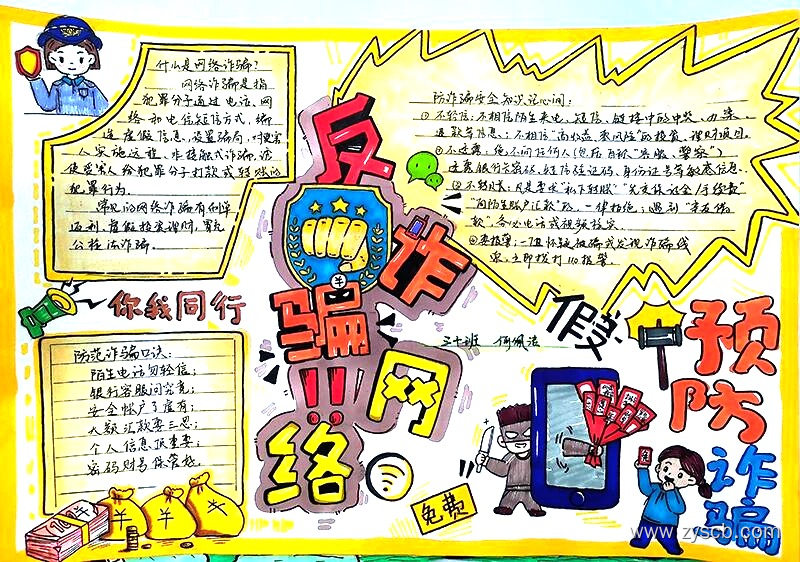 什么是网络诈骗?
网络诈骗是指
犯罪分子通过电话、网
络和电信短信方式,编
造虚假信息,设置骗局,对受害
人实施远程、非接触式诈骗,诱
使受害人给犯罪分子打款或转账的
犯罪行为。
常见的网络诈骗有刷单
返利、虚假投资理财、冒充
公检法诈骗。
你我同行
防范诈骗口诀:
陌生电话勿轻信;
银行客服问究竟;
安全帐户子虚有;
大额汇款要三思;
个人信息很重要;
密码财号保管好
反
诈
骗
!!
网
络
防诈骗安全知识记心间:
①不轻信:不相信陌生来电,短信,链接中的中奖,办案,
退款等信息;不相信"高收益,零风险"的投资,理财项目。
②不透露:绝不向任何人(包括自称"客服,警察")
透露银行卡密码,短信验证码,身份证号等敏感信息.
③不转账:凡是要求"私下转账"
"向陌生账户汇款"的,一律拒绝;遇到
款"务必电话或视频核实.
④要报警:一旦怀疑被骗或发现诈骗线
索,立即拨打110报警
三十班
假
预
防
诈
骗
免费
100
¥
¥
¥
www.zyscb.com